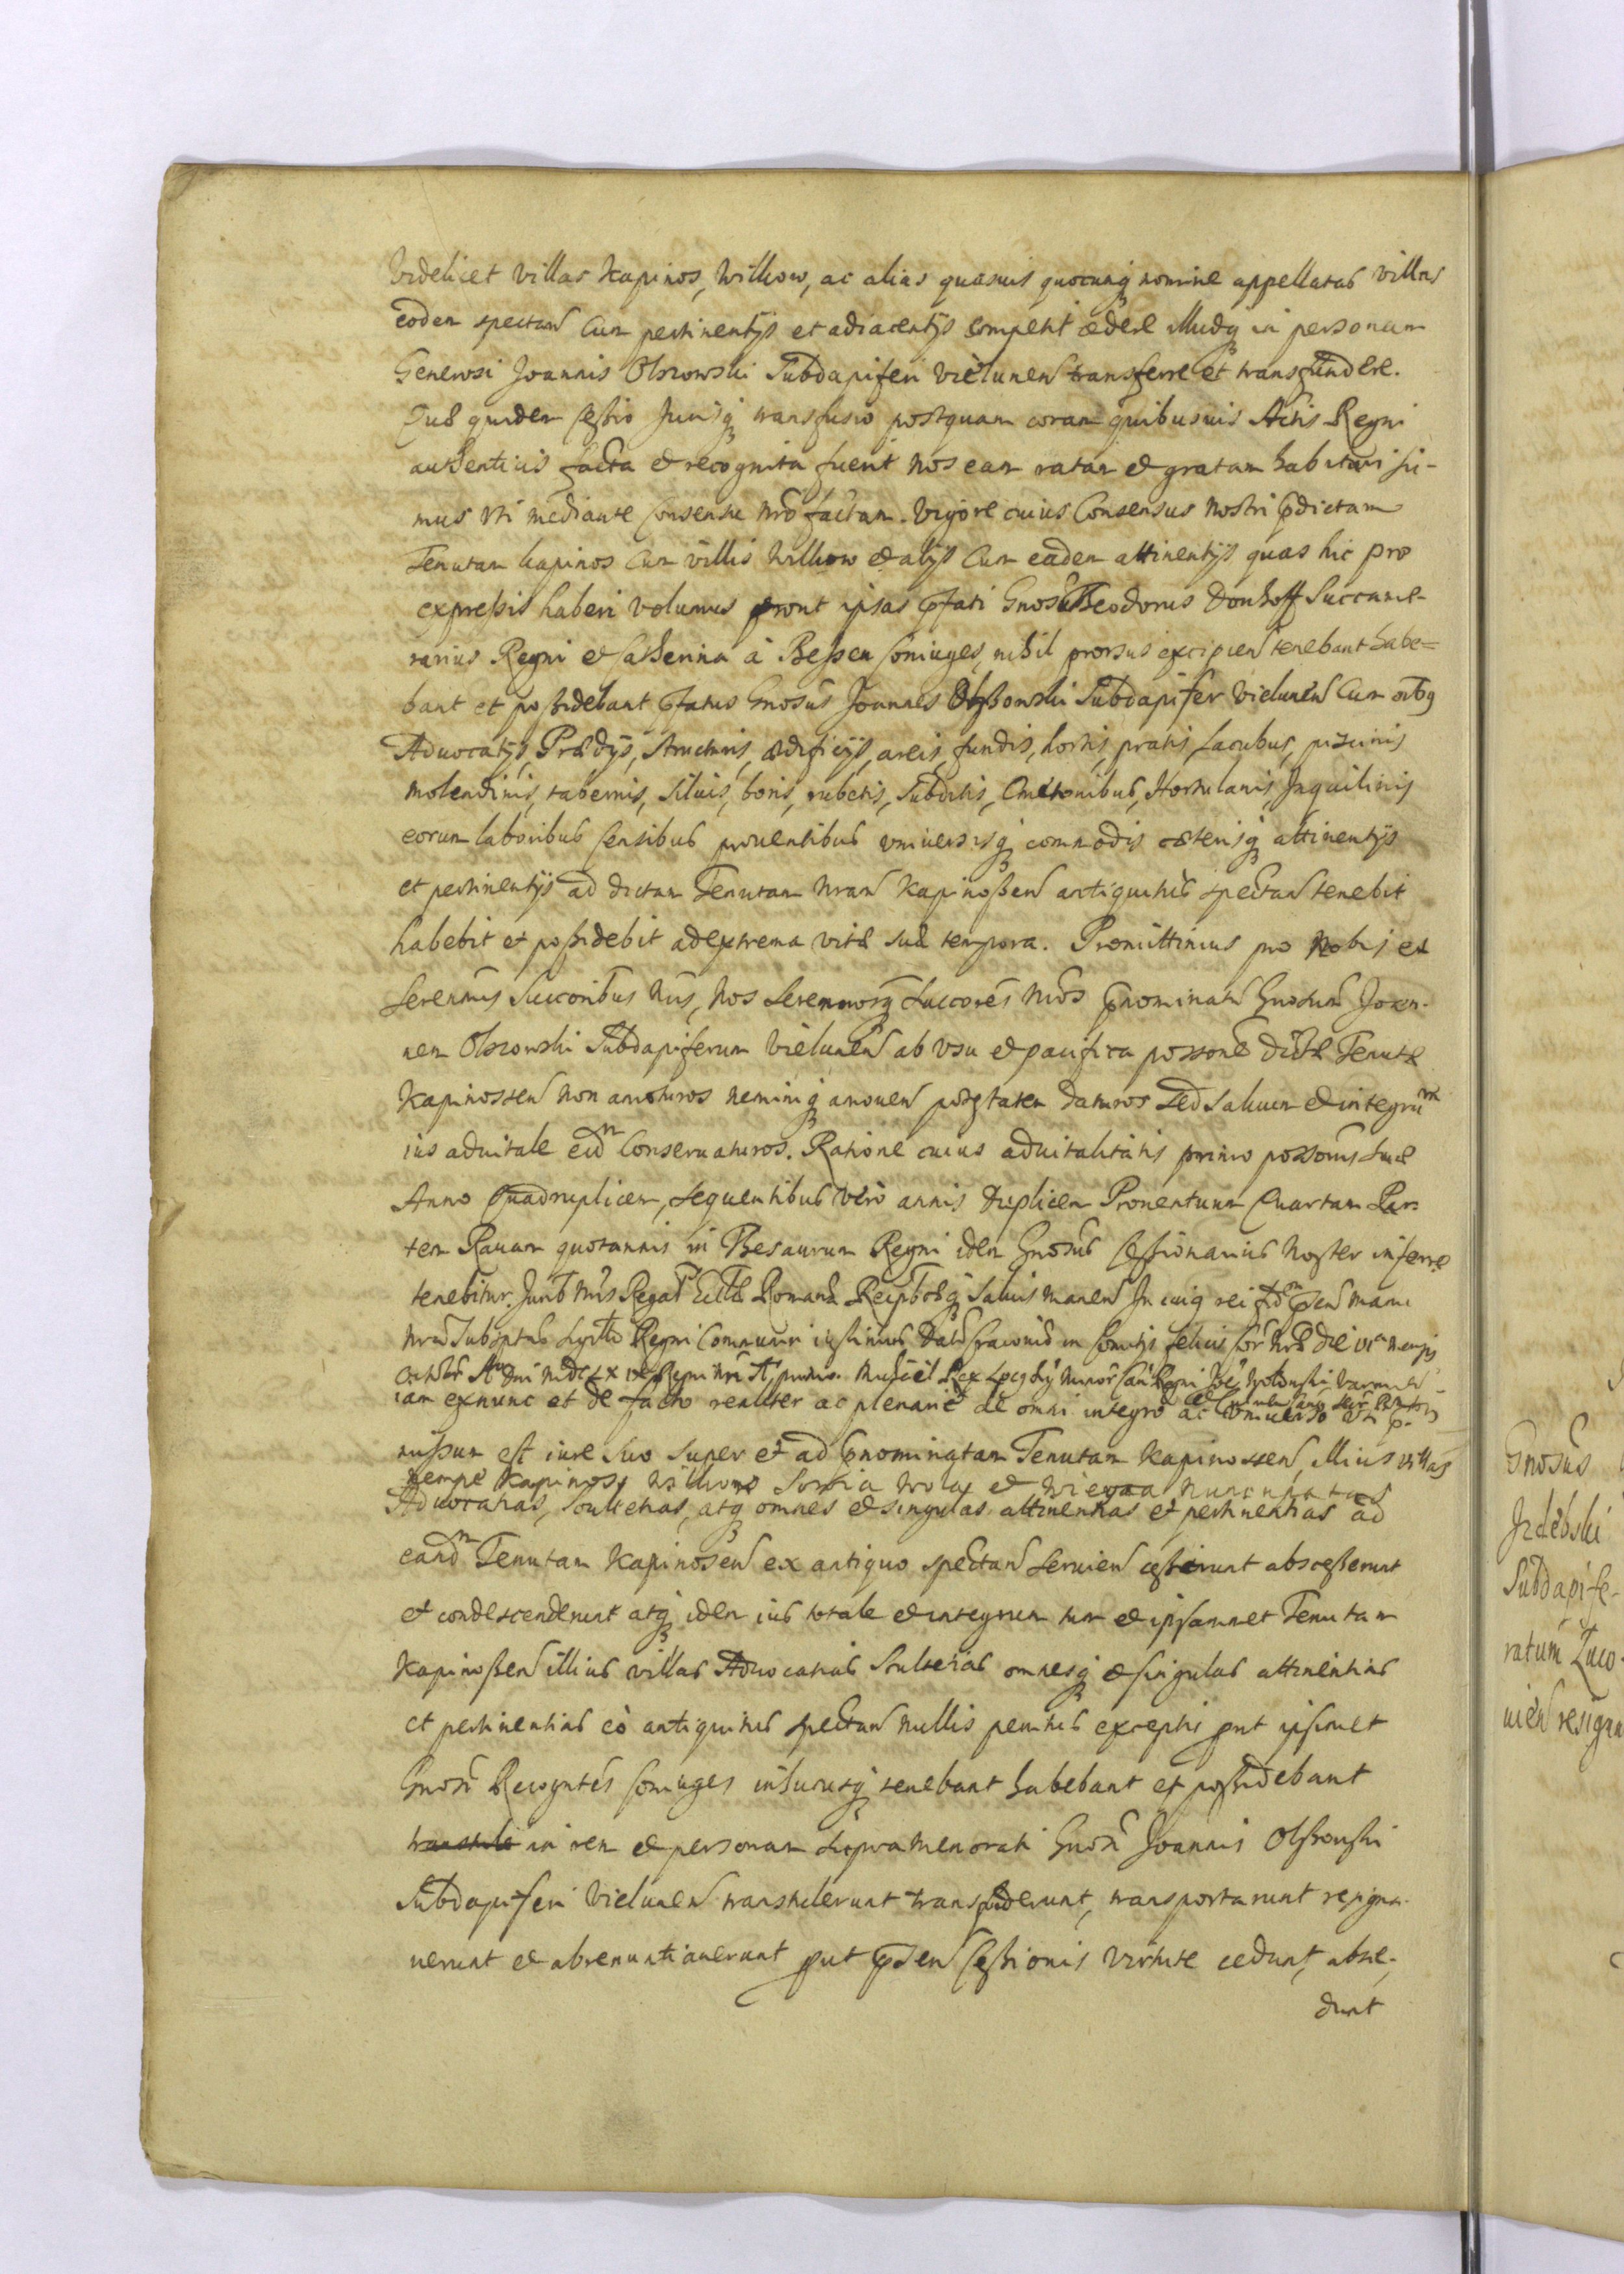 Videlicet villas Kapinos, Wilkow, ac alias quasuis quocunq nomine appellatas villas
eodem spectan cum pertinentijs et adiacentijs competit cedere illudq in personam
Generosi Joannis Olszowski Subdapiferi Vielunen transferre et transfundere.
Quæ quidem cessio Jurisq transfusio postquam coram quibusuis Actis Regni
authenticis facta et recognita fuerit nos eam ratam et gratam habituri su-
mus uti mediante consensu nro factam. Vigore cuius Consensus nostri pdictam
Tenutam Kapinos cum villis Wilkow et alijs cum eadem attinentijs quas hic pro
expressis haberi volumus pront ipsas pfati Gnosi Theodorus Donhoff Succame-
rarius Regni et Catherina à Bessen Coniuges, nihil prorsus excipien tenebant habe=
bant et possidebant pfatus Gnosus Joannes Olszowski Subdapifer Vielunen cum oibq
Aduocatijs, Prædijs, structuris, ædificijs, areis, fundis, hortis, pratis, lacubus, piscinis
molendinis, tabernis, siluis, boris, rubetis, subditis, Cmetonibus, Hortulanis, Inquilinis
eorum laboribus censibus prouentibus vniuersisq commodis cæterisq attinentijs
et pertinentijs ad dictam Tenutam nram Kapinossen antiquitus spectan tenebit
habebit et possidebit ad extrema vitæ suæ tempora. Promittimus pro nobis et
Serenmis Succoribus nris, nos Serenmosq Succores nros pnominatu Gnosum Joan-
nem Olszowski Subdapiferum Vielunen ab vsu et pacifica possone dictæ Tenutæ
Kapinossen non amoturos neminiq amouen potestatem daturos sed saluum et integrum
ius aduitale eidm conseruaturos. Ratione cuius aduitalitatis primo possonis suæ
Anno Quadruplicem, sequentibus vero annis Duplicem Prouentuum Quartam Par-
tem Rauam quotannis in Thesaurum Regni idem Gnosus Cessionarius noster inferre
tenebitur. Jurib nris Regal Eccl Romanæ Reipcæq saluis manen In cuiq rei fidem psen manu
nra subsptas Sigillo Regni communiri iussimus Dat Cracouiæ in Comitijs felicis Cor nræ die
iam exnunc et de facto realiter ac plenarie de omni integro ac vniuerso
missum est iure suo super et ad pnominatam Tenutam Kapinossen, illius villas
nempe Kapinos, Wilkowo Wola et nuncupatas
Aduocatias, Scultetias, atq omnes et singulas attinentias et pertinentias ad
eandm Tenutam Kapinosen ex antiquo spectan seruien cesserunt abscesserunt
et condescenderunt atq idem ius totale et integrum tum et ipsammet Tenutam
Kapinossen illius villas Aduocatias Scultetias omnesq et singulas attinentias
et pertinentias eò antiquitus spectan nullis penitus exceptis put ipsimet
Gnosi Recogntes Coniuges inhucusq tenebant habebant et possidebant
in rem et personam supramemorati Gnosi Joannis Olszowski
Subdapiferi Vielunen transtulerunt transfuderunt, transportarunt resigna-
uerunt et abrenuntiauerunt put psen Cessionis virtute cedunt, absce-
dunt
Gnosus
Izdebski
Subdapife-
ratum Luco-
uien resigna